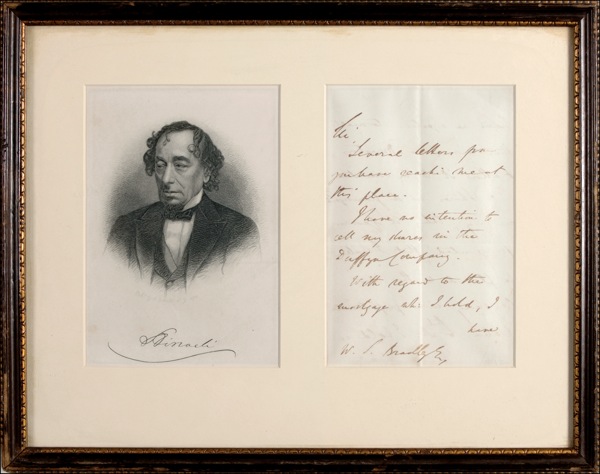 Disraeli
Sir
Several letters from
you have reached me at
this place.
I have no intention to
sell my shares in the
Company.
With regard to the
mortgage wh: I hold, I
have
W. S. Bradley